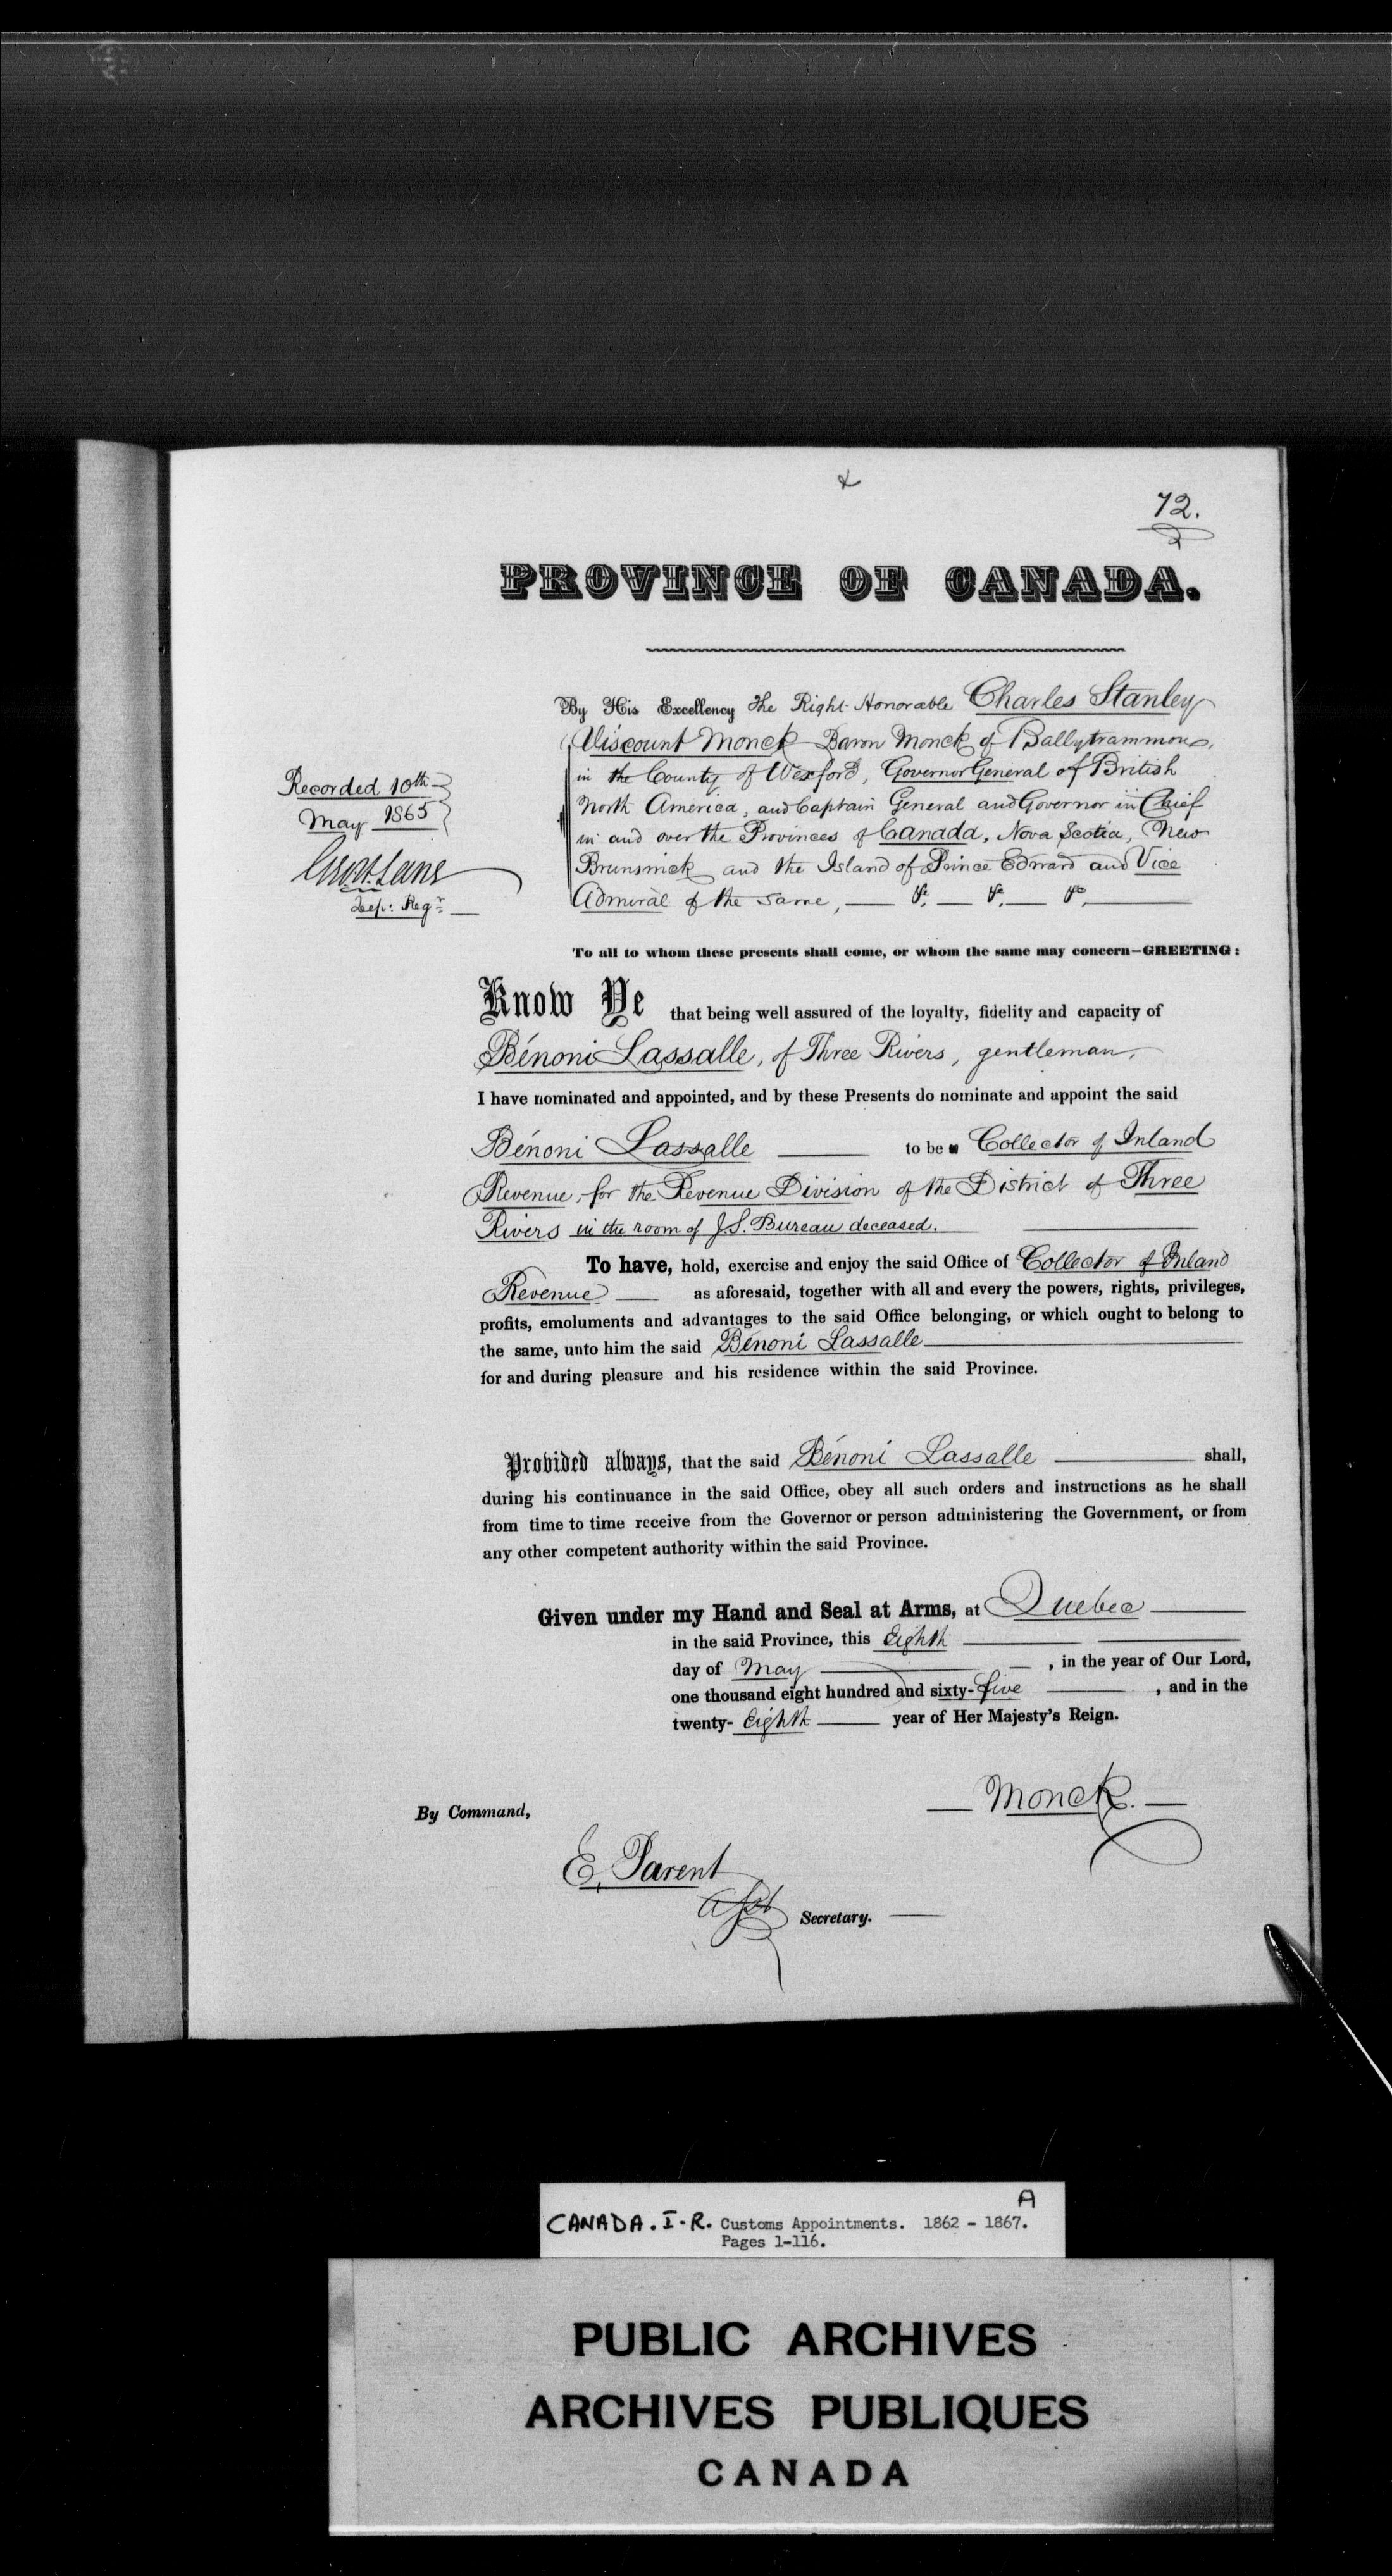 72.
PROVINCE OF CANADA.
By His Excellency The Right Honorable Charles Stanley
Viscount Monck Baron Monck of Ballytrammon,
in the County of Wexford, Governor General of British
North America, and Captain General and Governor in Chief
in and over the Provinces of Canada, Nova Scotia, New
Brunswick and the Island of Prince Edward and Vice
Admiral of the same, — &c. — &c. — &c.
Recorded 10th
May 1865
Dep: Regr
To all to whom these presents shall come, or whom the same may concern—GREETING:
Know Ye that being well assured of the loyalty, fidelity and capacity of
Bénoni Lassalle, of Three Rivers, gentleman,
I have nominated and appointed, and by these Presents do nominate and appoint the said
Bénoni Lassalle — to be Collector of Inland
Revenue, for the Revenue Division of the District of Three
Rivers in the room of J.S. Bureau deceased.
To have, hold, exercise and enjoy the said Office of Collector of Inland
Revenue — as aforesaid, together with all and every the powers, rights, privileges,
profits, emoluments and advantages to the said Office belonging, or which ought to belong to
the same, unto him the said Bénoni Lassalle
for and during pleasure and his residence within the said Province.
Provided always, that the said Bénoni Lassalle — shall,
during his continuance in the said Office, obey all such orders and instructions as he shall
from time to time receive from the Governor or person administering the Government, or from
any other competent authority within the said Province.
Given under my Hand and Seal at Arms, at Quebec
in the said Province, this Eighth
day of May — , in the year of Our Lord,
one thousand eight hundred and sixty-five — , and in the
twenty-Eighth — year of Her Majesty's Reign.
— Monck. —
By Command,
E. Parent
Asst Secretary. —
A
CANADA. I-R. Customs Appointments. 1862 - 1867.
Pages 1-116.
PUBLIC ARCHIVES
ARCHIVES PUBLIQUES
CANADA